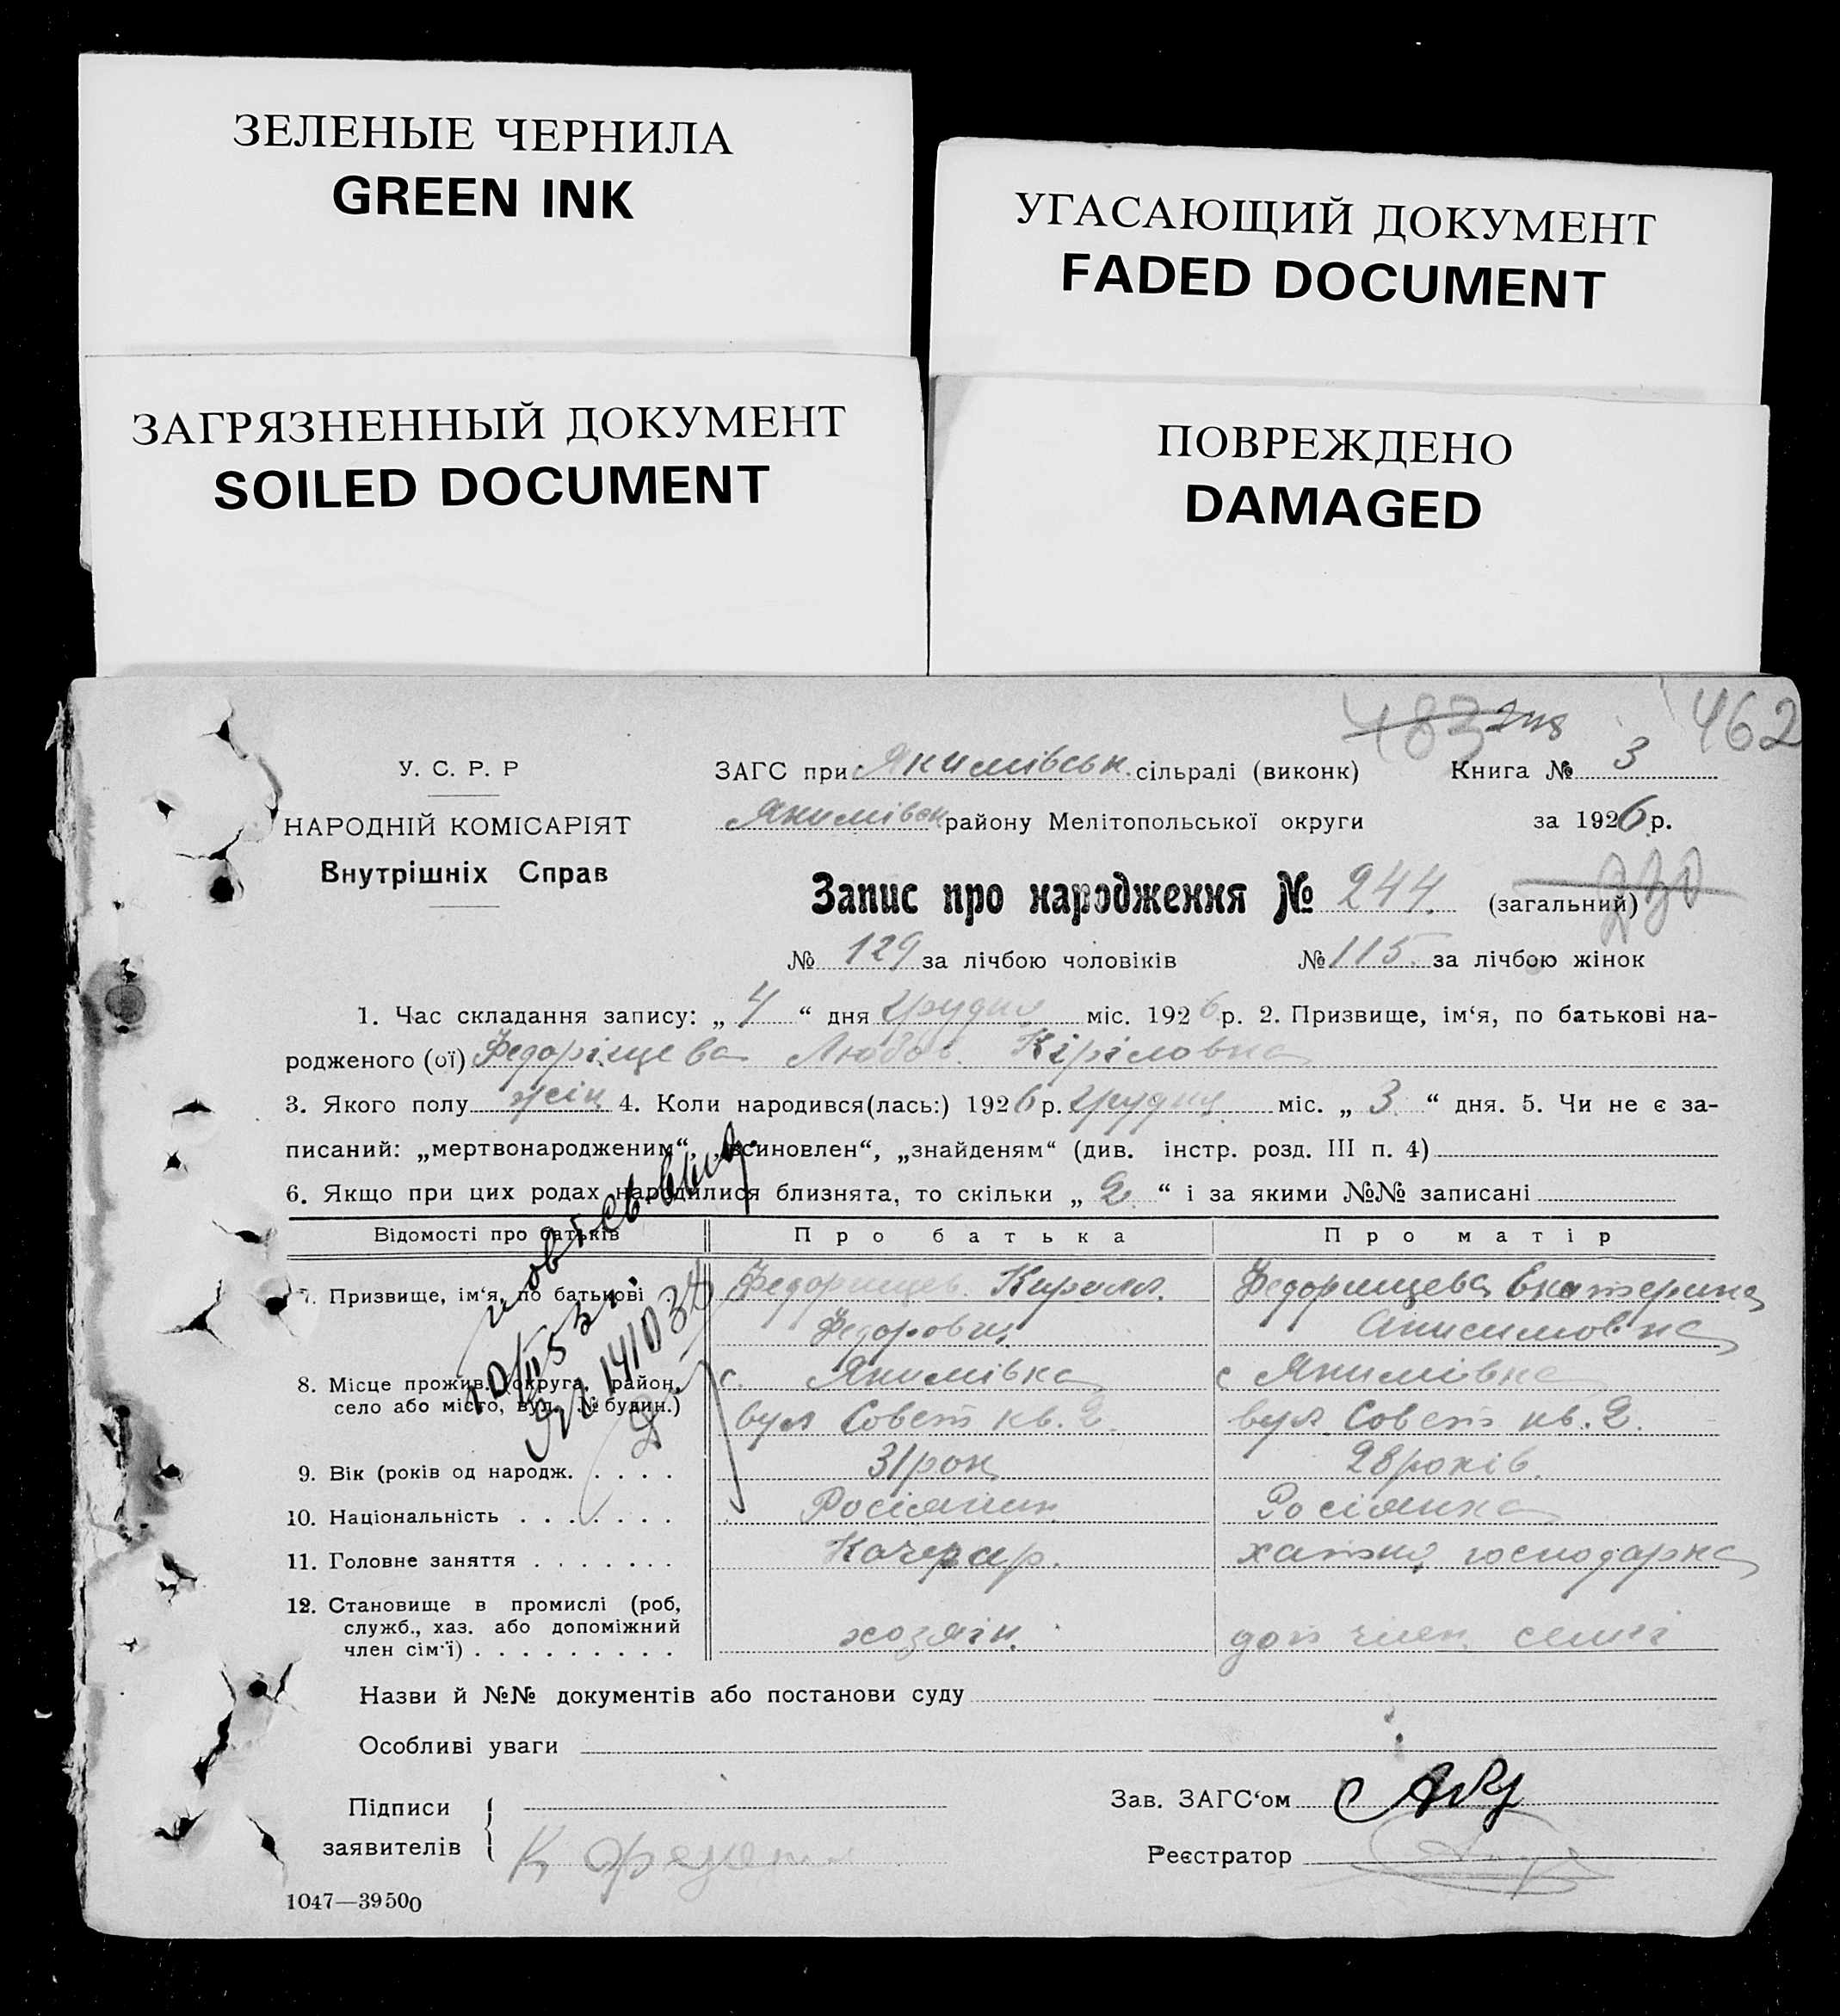 ЗЕЛЕНЫЕ ЧЕРНИЛА
GREEN INK
УГАСАЮЩИЙ ДОКУМЕНТ
FADED DOCUMENT
ЗАГРЯЗНЕННЫЙ ДОКУМЕНТ
SOILED DOCUMENT
ПОВРЕЖДЕНО
DAMAGED
483 462
У. С. Р. Р
НАРОДНІЙ КОМІСАРІЯТ
Внутрішніх Справ
ЗАГС при Якимівськ. сільраді (виконк) Книга № 3
Якимівськ району Мелітопольської округи за 1926 р.
Запис про народження № 244. (загальний) 230
№ 129 за лічбою чоловіків № 115 за лічбою жінок
1. Час складання запису: „ 4 “ дня Грудня міс. 1926 р. 2. Призвище, ім‘я, по батькові на-
родженого (ої) Федоріщева Любов Кіріловна
3. Якого полу жін. 4. Коли народився(лась:) 1926 р. Грудня міс. „ 3 “ дня. 5. Чи не є за-
писаний: „мертвонародженим“, „всиновлен“, „знайденям“ (див. інстр. розд. III п. 4)
6. Якщо при цих родах народилися близнята, то скільки „ 2 “ і за якими №№ записані
Відомості про батьків Про батька Про матір
7. Призвище, ім‘я, по батькові Федорищев Кирилл. Федорищева Екатерина
Федорович Анисимовна
8. Місце прожив. (округа, район, с. Якимівка с Якимівка
село або місто, вул. № будин.) вул Совет кв. 2. вул Совет кв. 2.
9. Вік (років од народж. 31 рок 28 років.
10. Національність Росіянин Росіянка
11. Головне заняття хатня господарка
12. Становище в промислі (роб,
служб., хаз. або допоміжний
член сім‘ї) хозяін. доп член семі
Назви й №№ документів або постанови суду
Особливі уваги
Підписи
заявителів
Зав. ЗАГС‘ом
Реєстратор
1047—39500